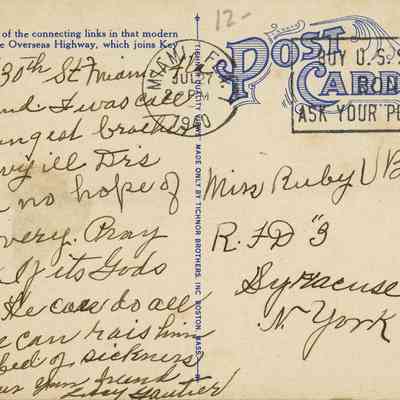 of the connecting links in that modern
e Overseas Highway, which joins Key
12-
POST CARD
MIAMI, FLA.
JUL 27
PM
BUY U.S. S
BON
ASK YOUR PO
30th St Miami Fla
and. I was call
ngest brother
very ill Drs
no hope of
overy. Pray
If its Gods
He can do all
e can rais him
bed of sickness
our Friend
Lucy Gautier
TICHNOR QUALITY VIEWS. MADE ONLY BY TICHNOR BROTHERS, INC. BOSTON, MASS.
Miss Ruby V B
R. F D "3
Syracuse
N. York